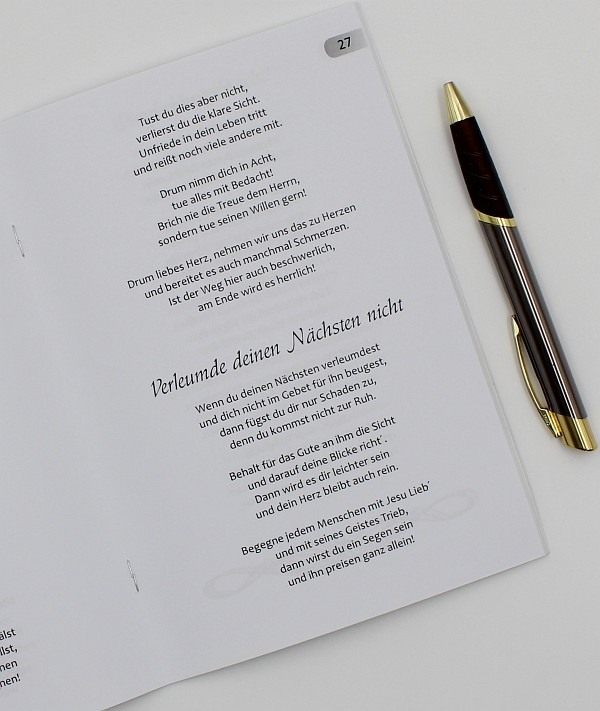 27
Tust du dies aber nicht,
verlierst du die klare Sicht.
Unfriede in dein Leben tritt
und reißt noch viele andere mit.
Drum nimm dich in Acht,
tue alles mit Bedacht!
Brich nie die Treue dem Herrn,
sondern tue seinen Willen gern!
Drum liebes Herz, nehmen wir uns das zu Herzen
und bereitet es auch manchmal Schmerzen.
Ist der Weg hier auch beschwerlich,
am Ende wird es herrlich!
Verleumde deinen Nächsten nicht
Wenn du deinen Nächsten verleumdest
und dich nicht im Gebet für ihn beugest,
dann fügst du dir nur Schaden zu,
denn du kommst nicht zur Ruh.
Behalt für das Gute an ihm die Sicht
und darauf deine Blicke richt´.
Dann wird es dir leichter sein
und dein Herz bleibt auch rein.
Begegne jedem Menschen mit Jesu Lieb´
und mit seines Geistes Trieb,
dann wirst du ein Segen sein
und ihn preisen ganz allein!